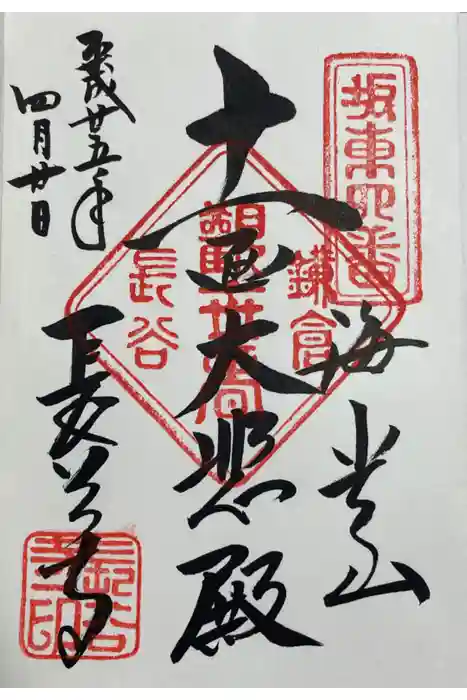 坂東四番
海光山
十一面大悲殿
鎌倉
觀世音
長谷
平成廿五年
四月廿日
長谷寺
長谷寺印